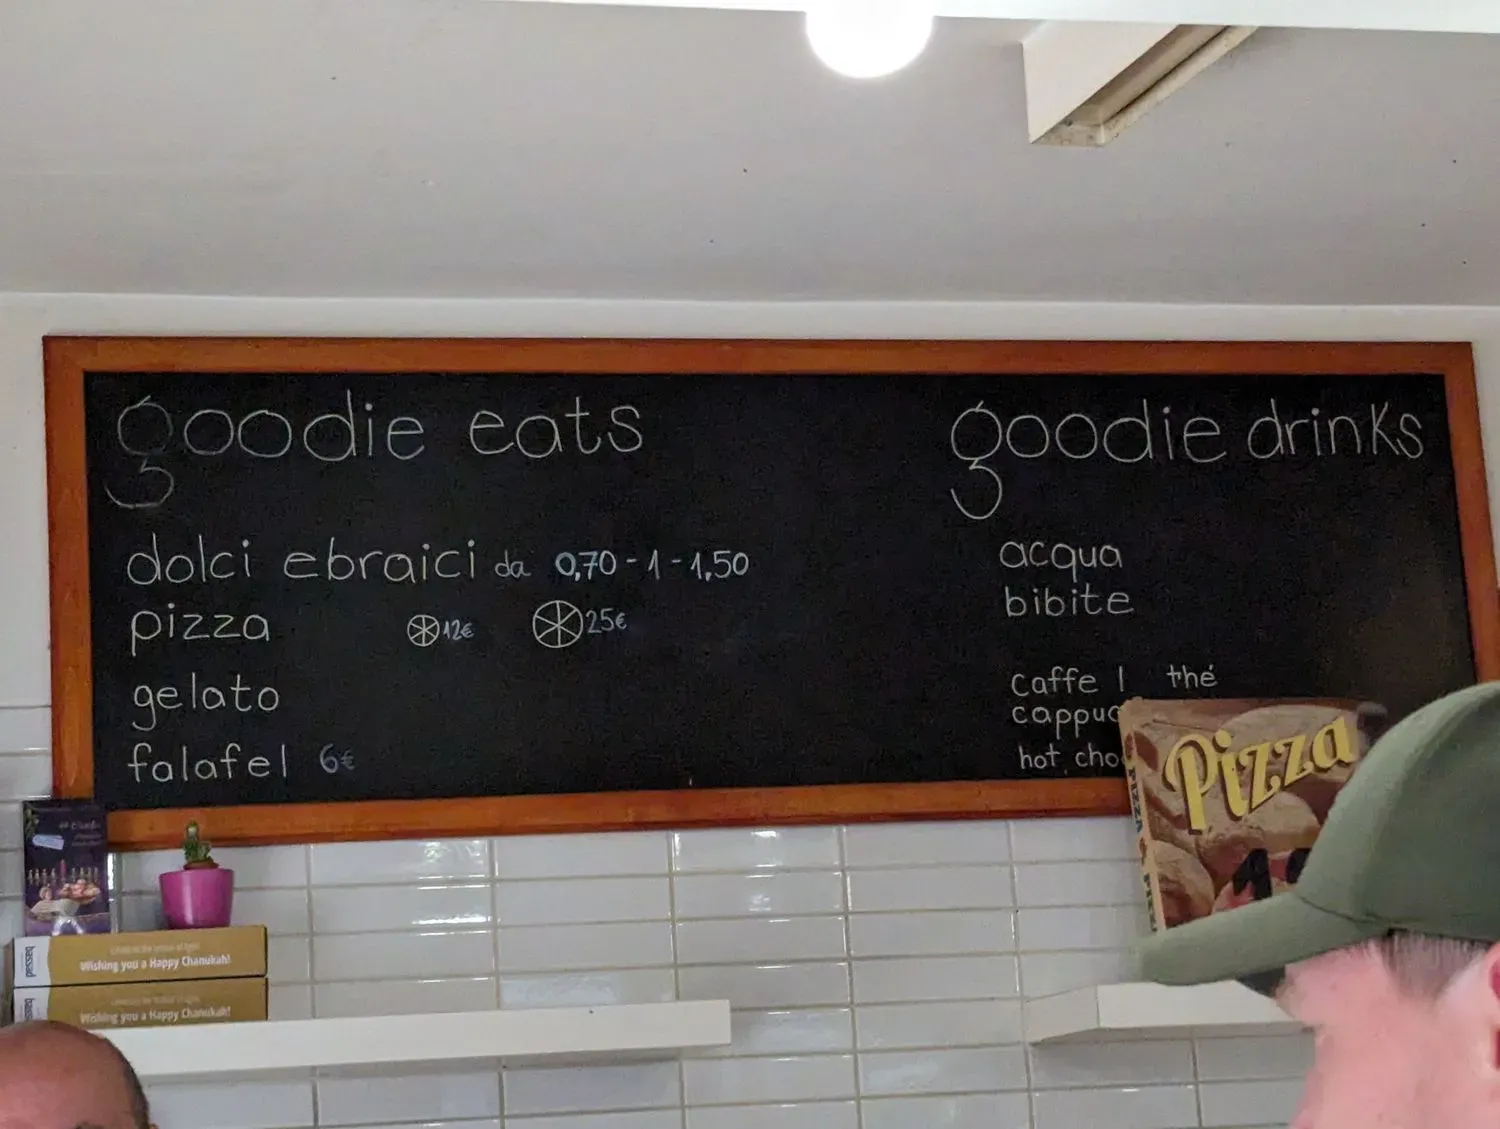 goodie eats
dolci ebraici da 0,70 - 1 - 1,50
pizza 12€ 25€
gelato
falafel 6€
goodie drinks
acqua
bibite
caffe | thé
cappuc
hot cho
Pizza
PIZZA
Wishing you a Happy Chanukah!
Wishing you a Happy Chanukah!